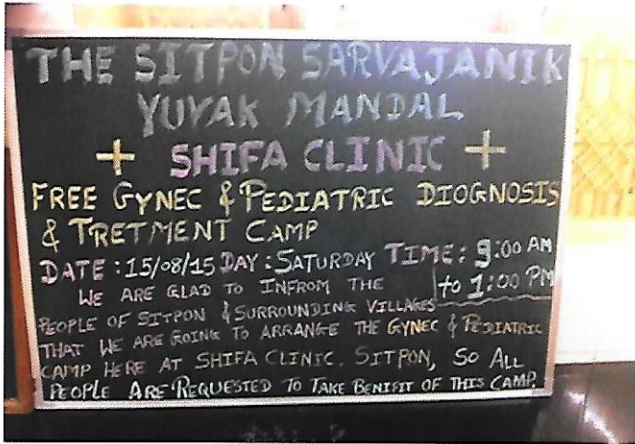 THE SITPON SARVAJANIK
YUVAK MANDAL
+ SHIFA CLINIC +
FREE GYNEC & PEDIATRIC DIOGNOSIS
& TRETMENT CAMP
DATE : 15/08/15 DAY : SATURDAY TIME : 9:00 AM
to 1:00 PM
WE ARE GLAD TO INFROM THE
PEOPLE OF SITPON & SURROUNDING VILLAGES
THAT WE ARE GOING TO ARRANGE THE GYNEC & PEDIATRIC
CAMP HERE AT SHIFA CLINIC. SITPON, SO ALL
PEOPLE ARE REQUESTED TO TAKE BENIFIT OF THIS CAMP.